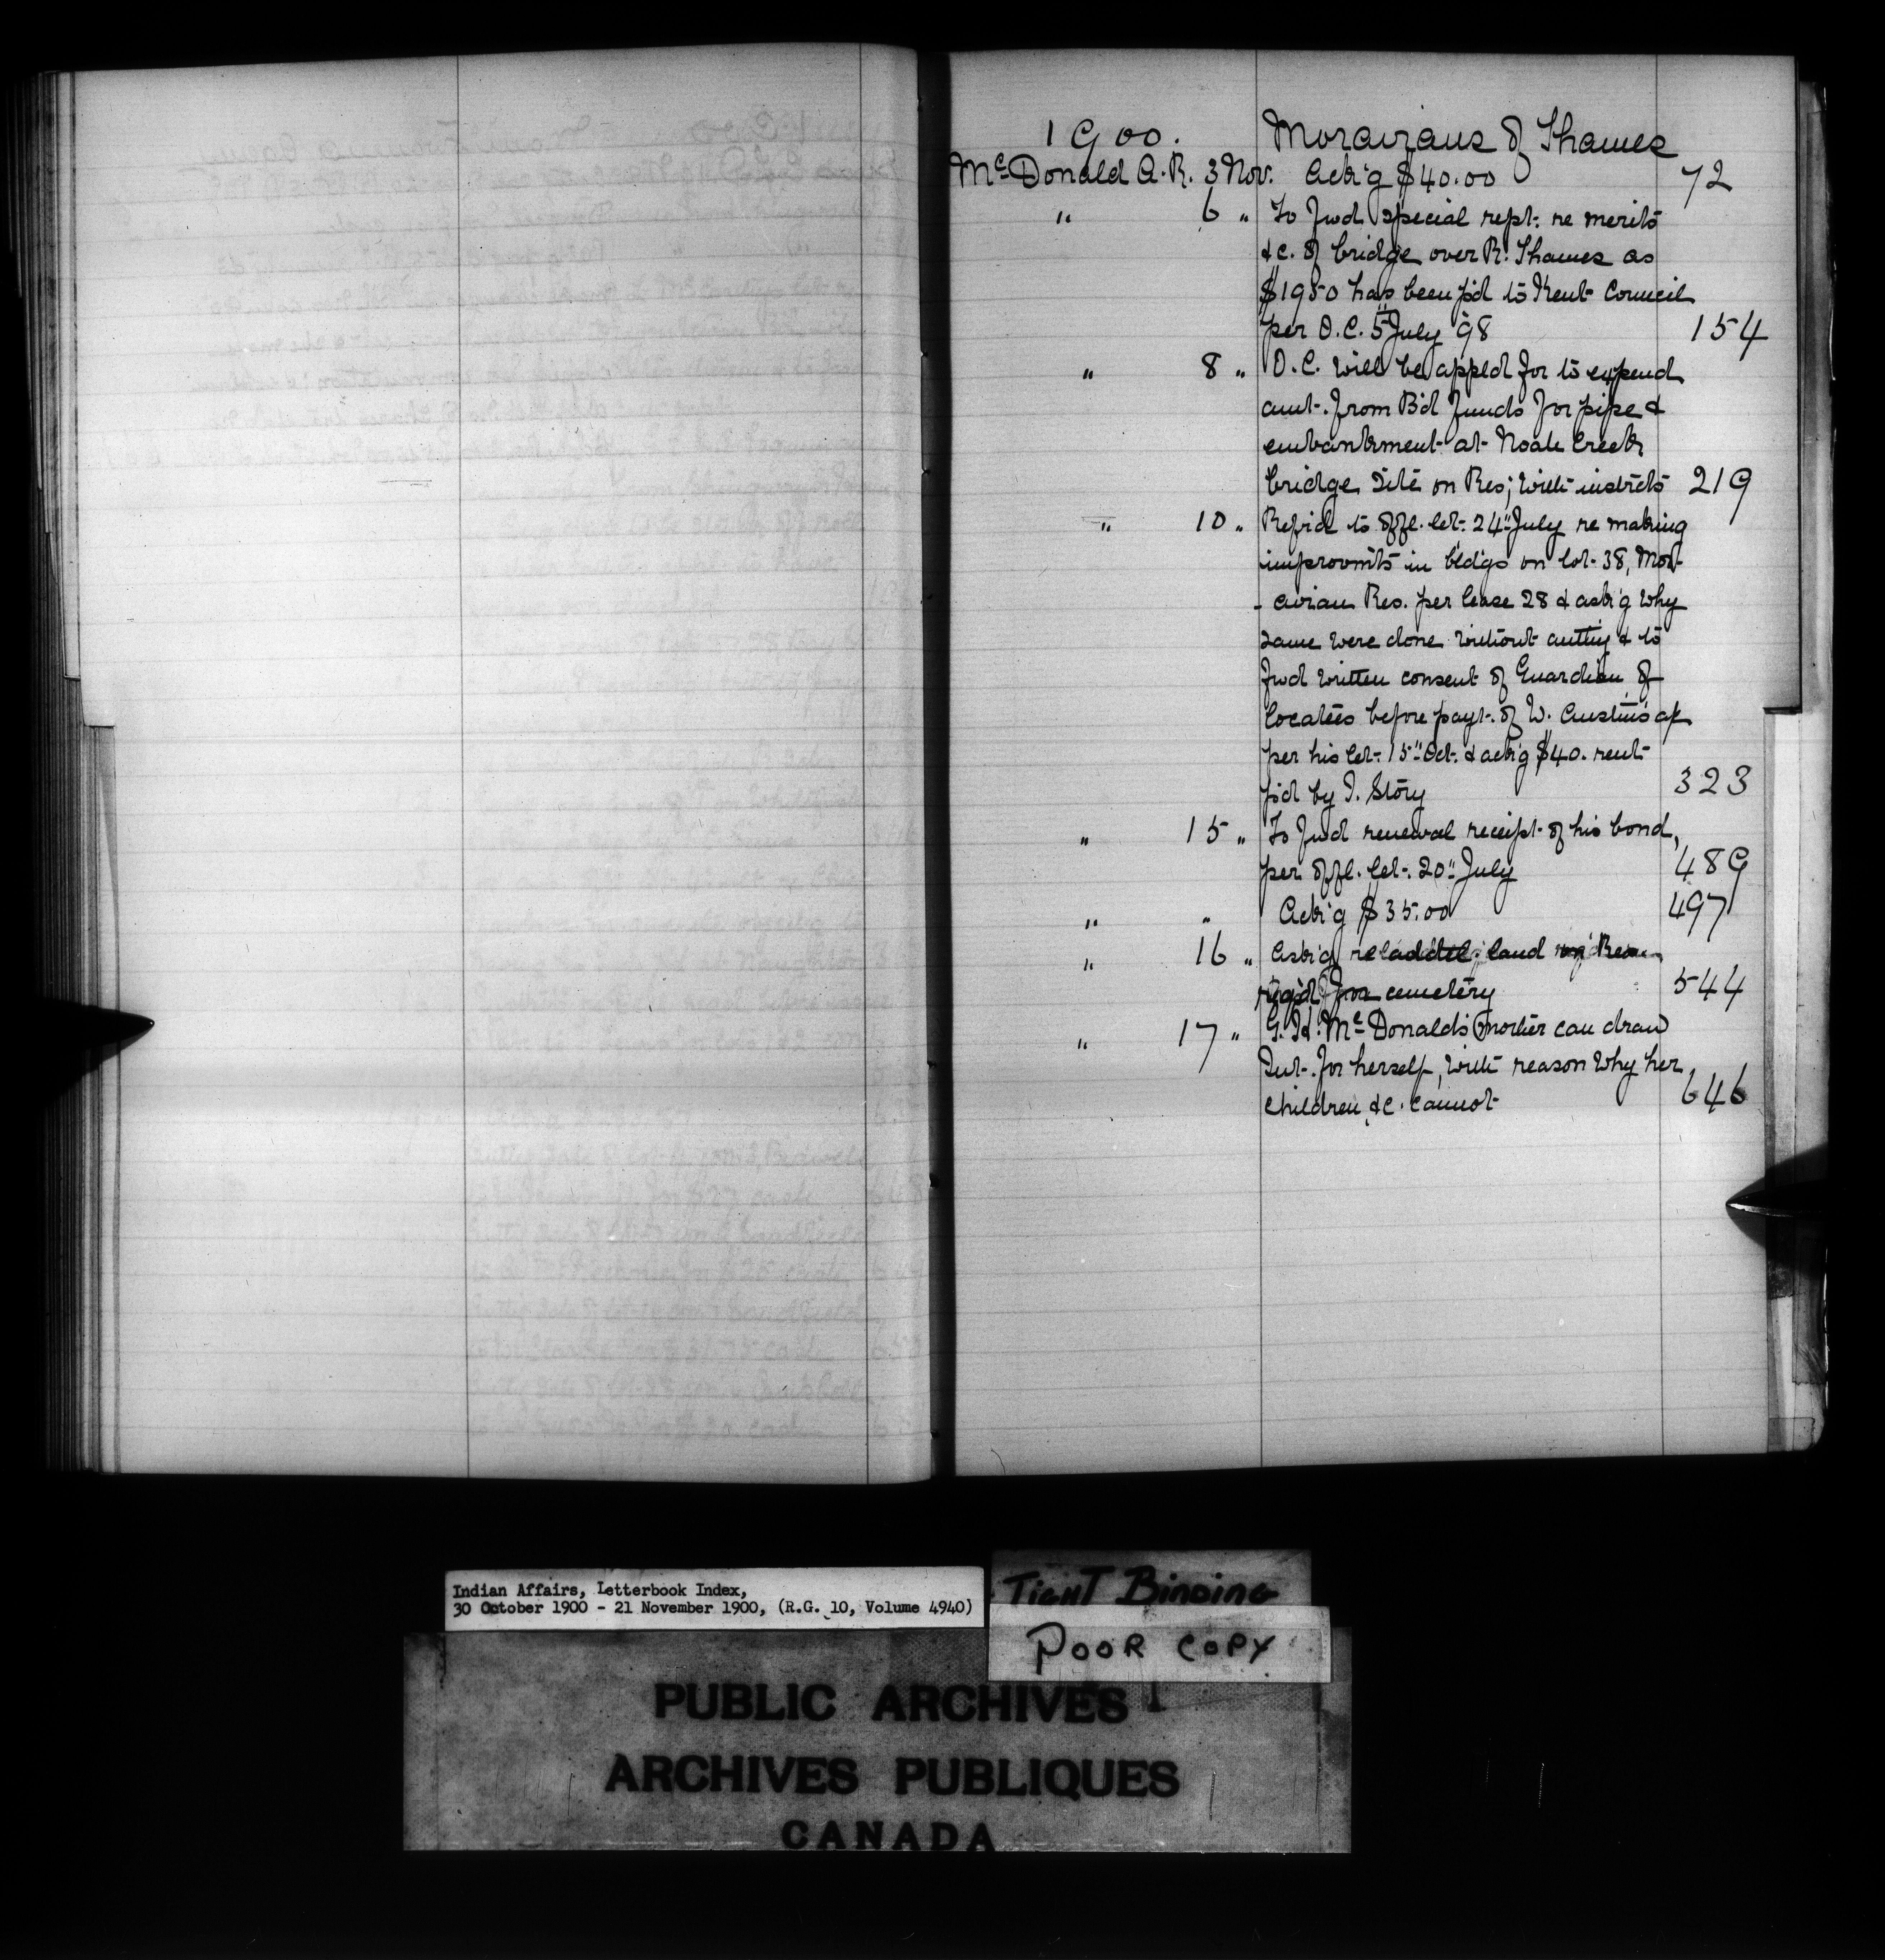 1900. Moravians of Thames
McDonald A.R. 3 Nov. Ack'g $40.00 72
" 6 " To fwd special rept: re merits
&c. of bridge over R. Thames as
$1950 has been p'd to Kent Council
per O.C. 5" July 98 154
" 8 " O.C. will be appld for to expend
amt. from B'd funds for pipe &
embankment at Noah Creek
bridge site on Res; with instrcts 219
" 10 " Refrd to offl. let. 24" July re making
improvmts in bldgs on lot 38, Mor-
- avian Res. per lease 28 & ask'g why
same were done without authy & to
fwd written consent of Guardian of
locatees before payt. of W. Austin's a/c
per his let. 15" Oct. & ack'g $40. rent
p'd by I. Story 323
" 15 " To fwd renewal receipt of his bond,
per offl. let. 20" July 489
" " Ack'g $35.00 497
" 16 " Ask'g re addtl. land
req'd for cemetery 544
" 17 " G. H. McDonald's mother can draw
Int. for herself, with reason why her
children &c. cannot 646
Indian Affairs, Letterbook Index,
30 October 1900 - 21 November 1900, (R.G. 10, Volume 4940)
TIGHT BINDING
POOR COPY
PUBLIC ARCHIVES
ARCHIVES PUBLIQUES
CANADA